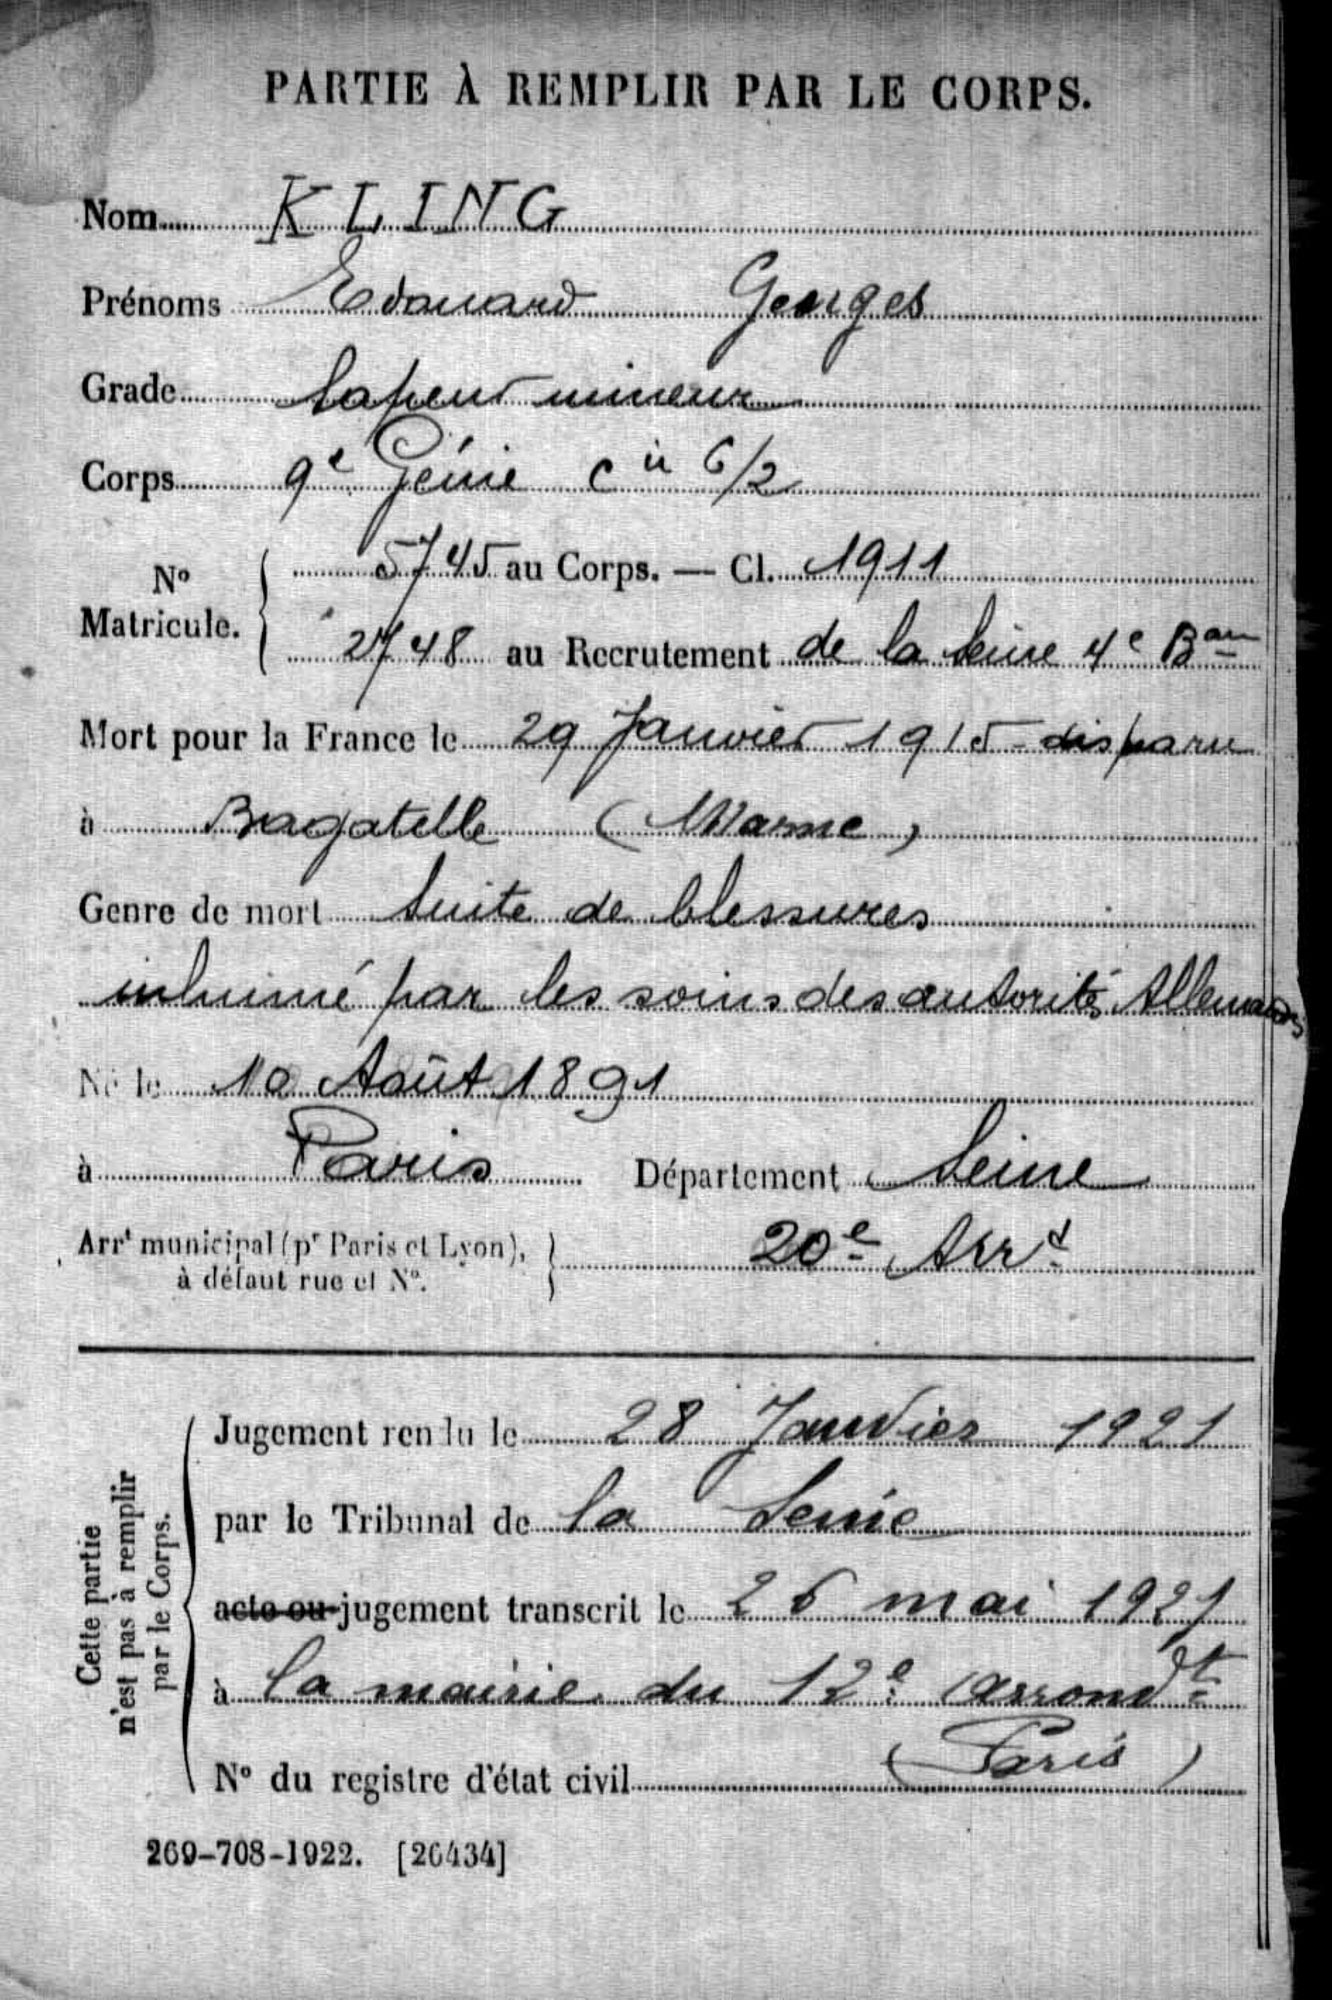 PARTIE À REMPLIR PAR LE CORPS.
Nom KLING
Prénoms Edouard Georges
Grade Sapeur mineur
Corps 9e Génie Cie 6/2
No Matricule. 5745 au Corps. — Cl. 1911
2748 au Recrutement de la Seine 4e Bau
Mort pour la France le 29 Janvier 1915 - disparu
à Bagatelle (Marne)
Genre de mort Suite de blessures
inhumé par les soins des autorités Allemandes
Né le 10 Août 1891
à Paris Département Seine
Arrt municipal (pr Paris et Lyon), 20e Arrt
à défaut rue et No.
Cette partie n'est pas à remplir par le Corps.
Jugement rendu le 28 Janvier 1921
par le Tribunal de la Seine
acte ou jugement transcrit le 26 mai 1921
à la mairie du 12e arrondt
(Paris)
No du registre d'état civil
269-708-1922. [26434]